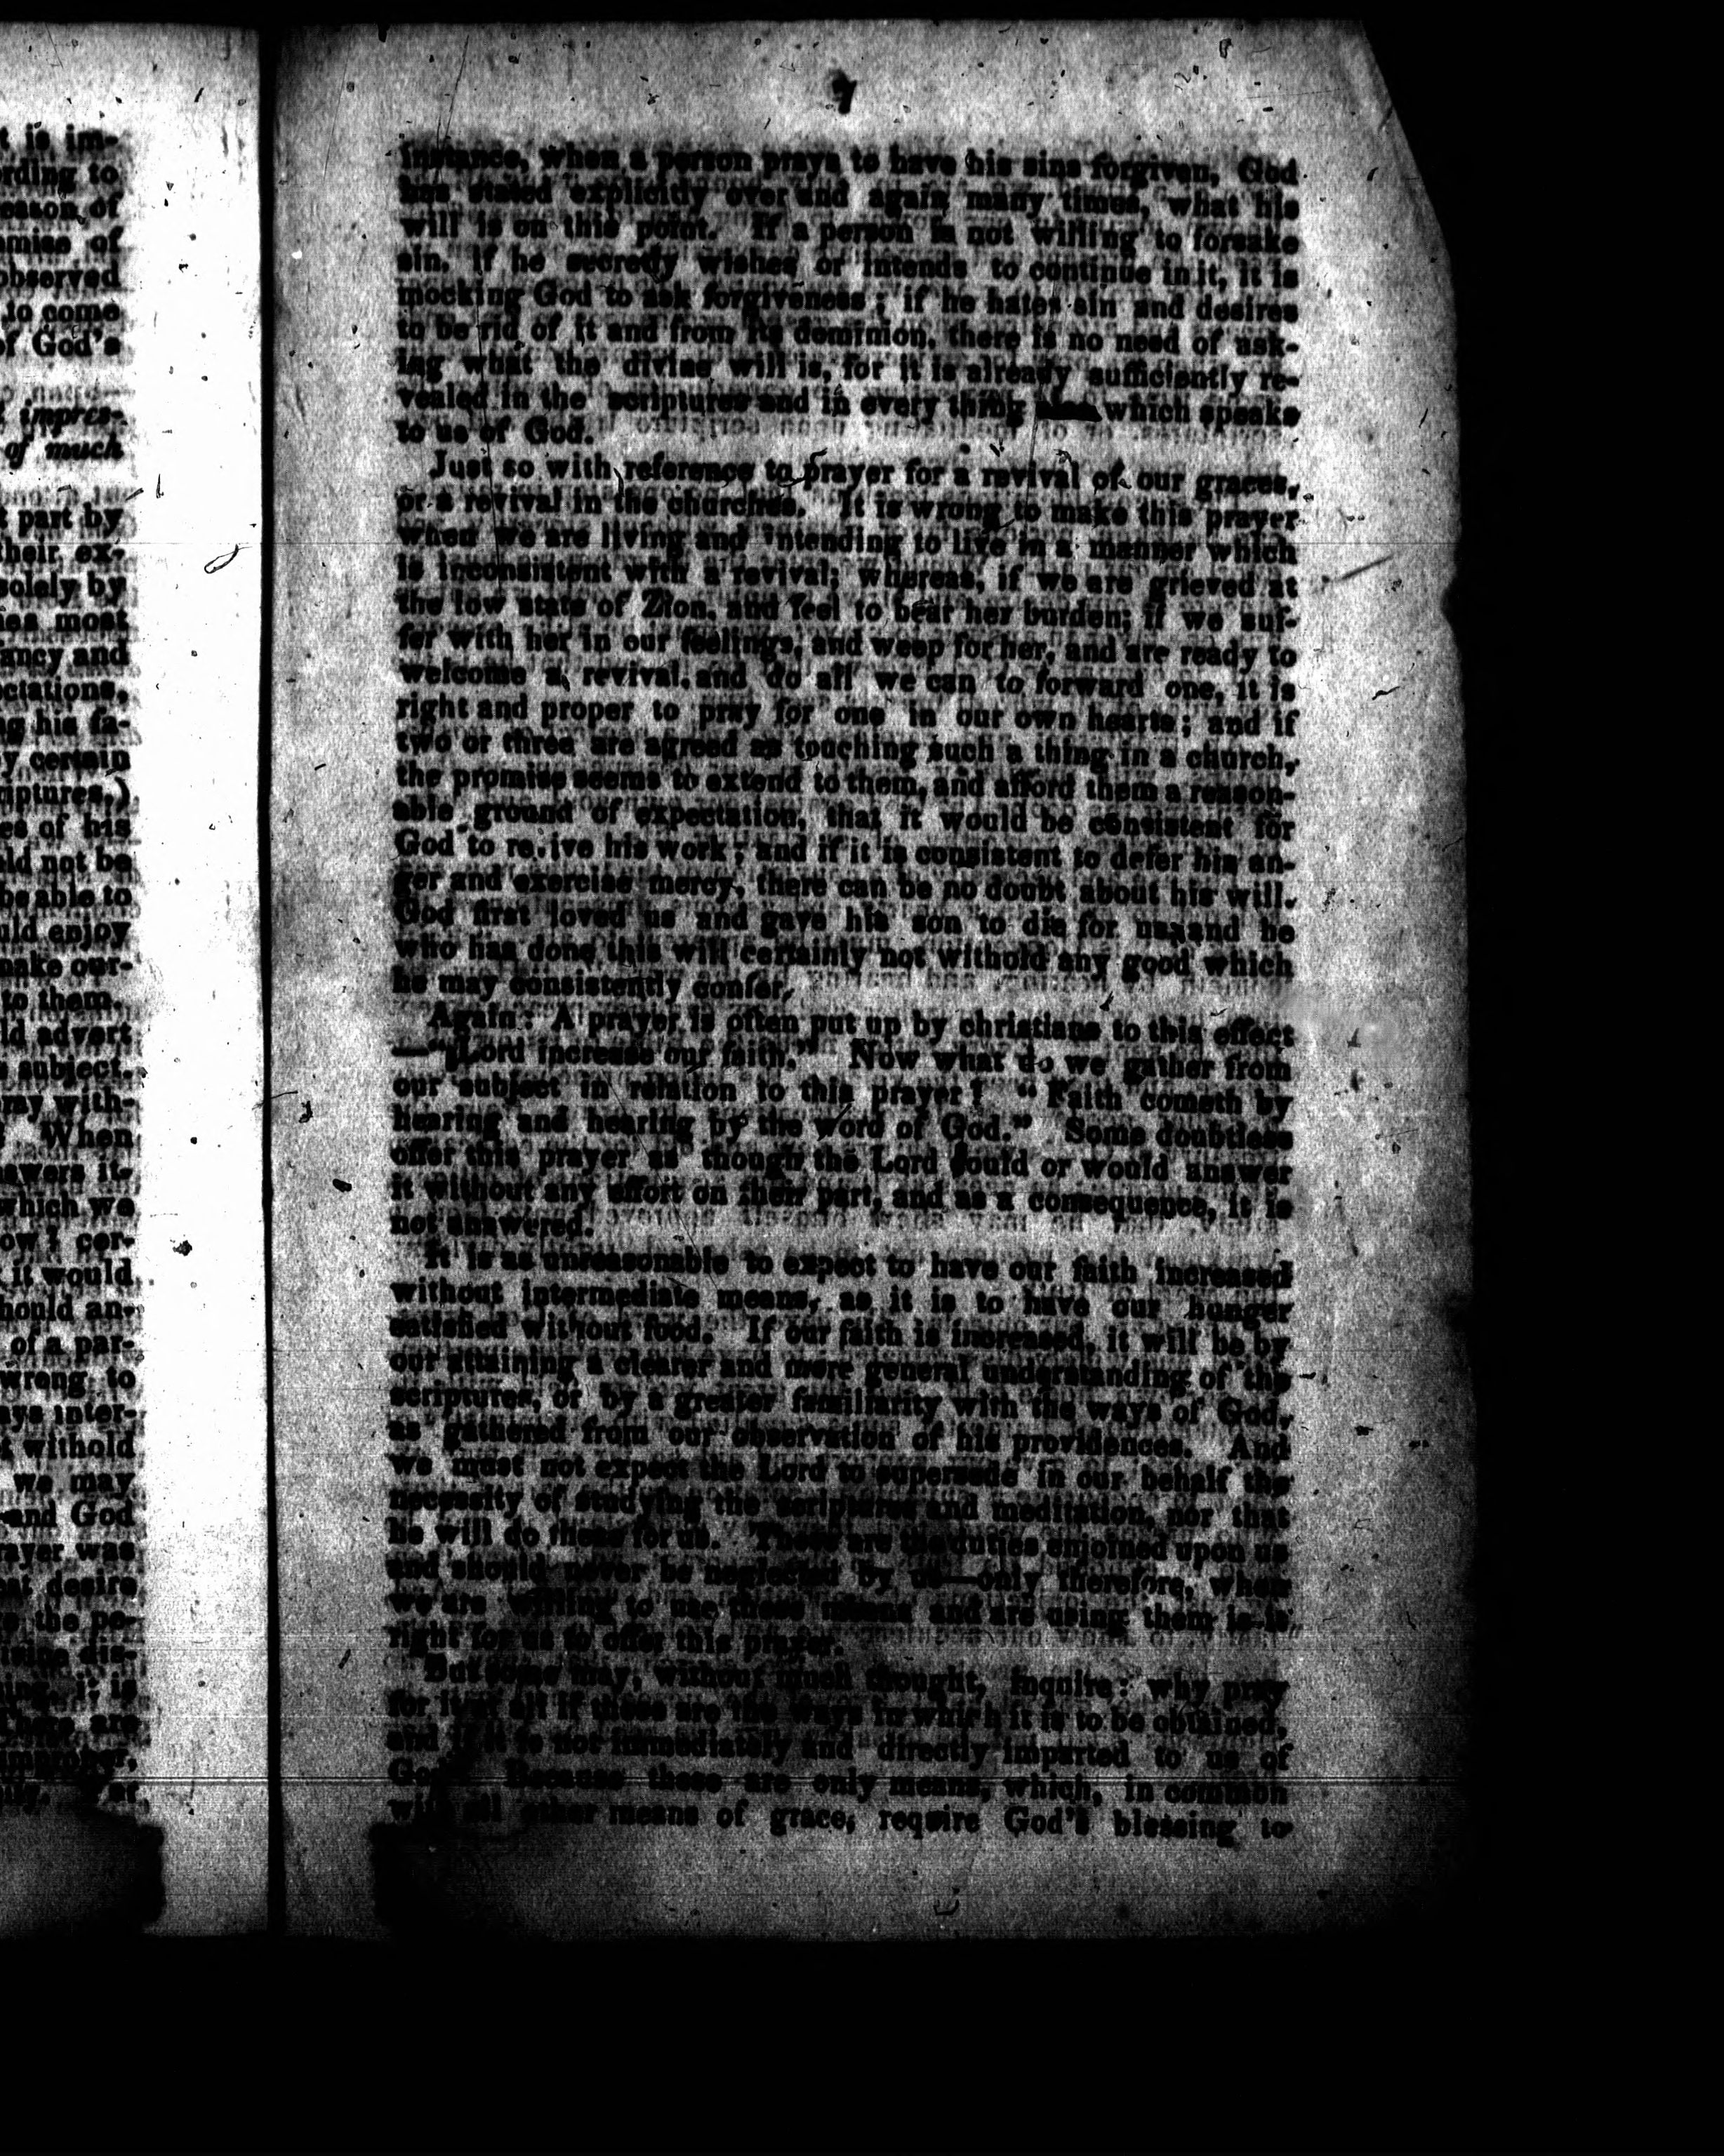 t is im-
ording to
eason of
omise of
observed
to come
of God's
impres-
of much
t part by
their ex-
solely by
most
ancy and
ctations,
ng his fa-
y certain
riptures,)
es of his
uld not be
be able to
uld enjoy
make our-
to them.
ld advert
subject.
my with-
When
swers it.
which we
ow I cer-
it would
hould an-
of a par-
wrong to
ays inter-
t withold
we may
and God
rayer was
eat desire
the pe-
dis-
is
There are
at
7
instance, when a person prays to have his sins forgiven, God
has stated explicitly over and again many times, what his
will is on this point. If a person is not willing to forsake
sin, if he secretly wishes or intends to continue in it, it is
mocking God to ask forgiveness; if he hates sin and desires
to be rid of it and from its dominion, there is no need of ask-
ing what the divine will is, for it is already sufficiently re-
vealed in the scriptures and in every thing which speaks
to us of God.
Just so with reference to prayer for a revival of our graces,
or a revival in the churches. It is wrong to make this prayer
when we are living and intending to live in a manner which
is inconsistent with a revival; whereas, if we are grieved at
the low state of Zion, and feel to bear her burden; if we suf-
fer with her in our feelings, and weep for her, and are ready to
welcome a revival, and do all we can to forward one, it is
right and proper to pray for one in our own hearts; and if
two or three are agreed as touching such a thing in a church,
the promise seems to extend to them, and afford them a reason-
able ground of expectation, that it would be consistent for
God to revive his work; and if it is consistent to defer his an-
ger and exercise mercy, there can be no doubt about his will.
God first loved us and gave his son to die for us, and he
who has done this will certainly not withold any good which
he may consistently confer.
Again: A prayer is often put up by christians to this effect
—"Lord increase our faith." Now what do we gather from
our subject in relation to this prayer? "Faith cometh by
hearing and hearing by the word of God." Some doubtless
offer this prayer as though the Lord could or would answer
it without any effort on their part, and as a consequence, it is
not answered.
It is as unreasonable to expect to have our faith increased
without intermediate means, as it is to have our hunger
satisfied without food. If our faith is increased, it will be by
our attaining a clearer and more general understanding of the
scriptures, or by a greater familiarity with the ways of God,
as gathered from our observation of his providences. And
we must not expect the Lord to supersede in our behalf the
necessity of studying the scriptures and meditation, nor that
he will do these for us. These are the duties enjoined upon us
and should never be neglected by us—only therefore, when
we are willing to use these means and are using them is it
right for us to offer this prayer.
But some may, without much thought, inquire: why pray
for it at all if these are the ways in which it is to be obtained,
and if it is not immediately and directly imparted to us of
God Because these are only means, which, in common
with all other means of grace, require God's blessing to